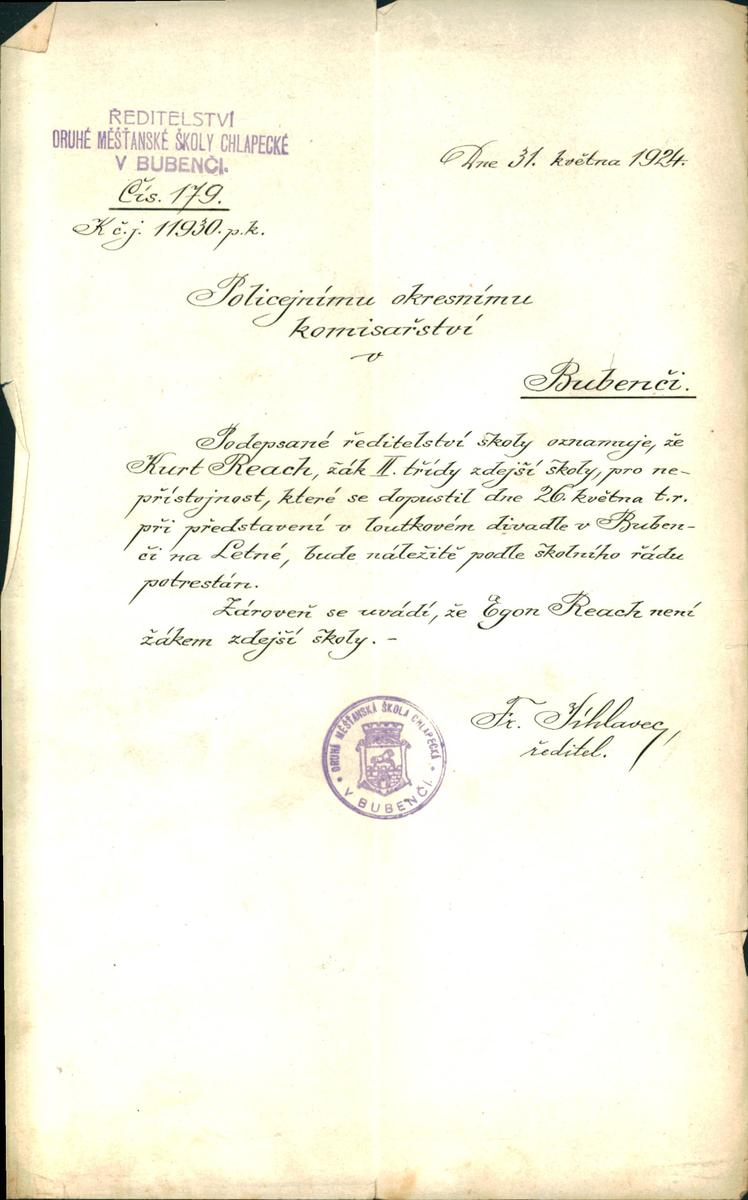 ŘEDITELSTVÍ
DRUHÉ MĚŠŤANSKÉ ŠKOLY CHLAPECKÉ
V BUBENČI.
Čís. 179.
K č.j. 11930.p.k.
Dne 31. května 1924.
Policejnímu okresnímu
komisařství
v
Bubenči.
Podepsané ředitelství školy oznamuje, že
Kurt Reach, žák II. třídy zdejší školy, pro ne-
přístojnost, které se dopustil dne 26. května t.r.
při představení v loutkovém divadle v Buben-
či na Letné, bude náležitě podle školního řádu
potrestán.
Zároveň se uvádí, že Egon Reach není
žákem zdejší školy. –
Fr. Jihlavec,
ředitel.
DRUHÁ MĚŠŤANSKÁ ŠKOLA CHLAPECKÁ
V BUBENČI.